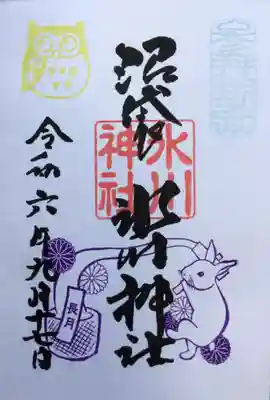 沼袋
氷川神社
氷川
神社
令和六年九月廿七日
長月